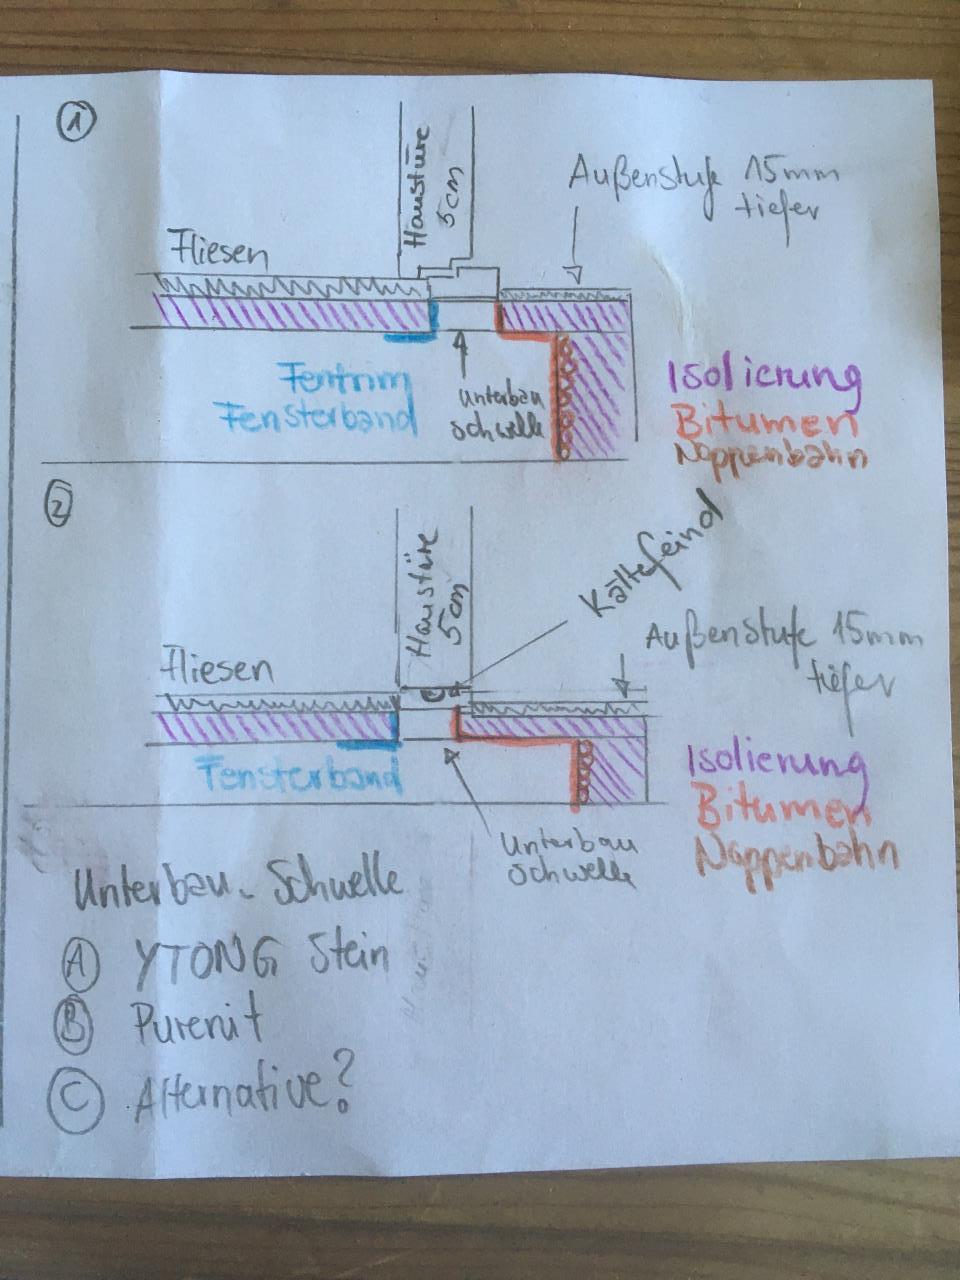 1
Haustüre
5cm
Außenstufe 15mm
tiefer
Fliesen
Fentrim
Fensterband
Unterbau
Schwelle
Isolierung
Bitumen
Noppenbahn
2
Haustüre
5cm
Kältefeind
Außenstufe 15mm
tiefer
Fliesen
Fensterband
Isolierung
Bitumen
Noppenbahn
Unterbau
Schwelle
Unterbau-Schwelle
A YTONG Stein
B Purenit
C Alternative?